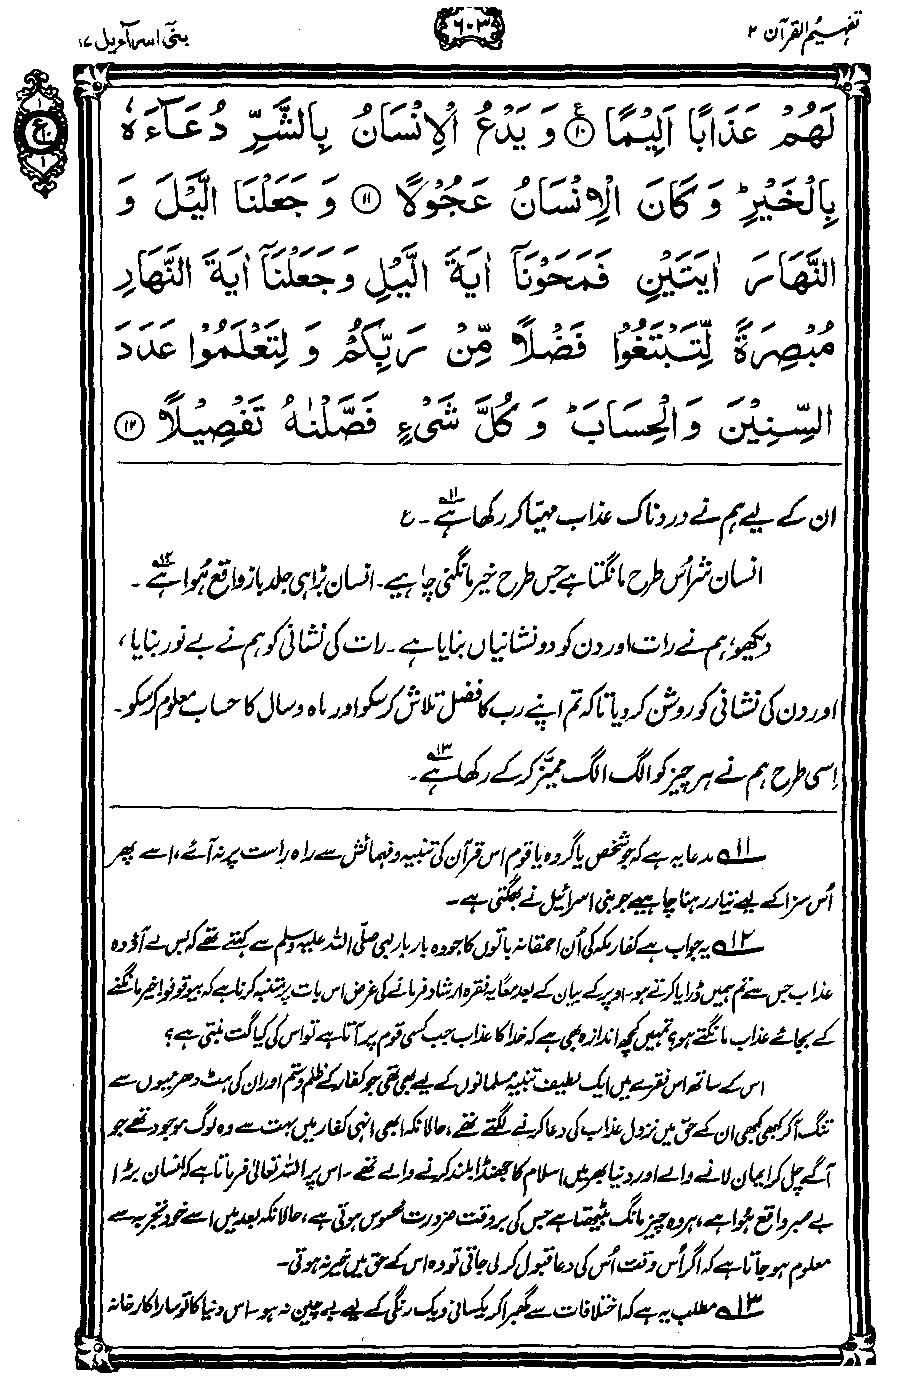 تفہیم القرآن ۲
۶۰۳
بنی اسرآءیل ۱۷
لَهُمْ عَذَابًا اَلِيْمًا ۝۱۰ وَ يَدْعُ الْاِنْسَانُ بِالشَّرِّ دُعَآءَهٗ
بِالْخَيْرِ ؕ وَ كَانَ الْاِنْسَانُ عَجُوْلًا ۝۱۱ وَ جَعَلْنَا الَّيْلَ وَ
النَّهَارَ اٰيَتَيْنِ فَمَحَوْنَاۤ اٰيَةَ الَّيْلِ وَ جَعَلْنَاۤ اٰيَةَ النَّهَارِ
مُبْصِرَةً لِّتَبْتَغُوْا فَضْلًا مِّنْ رَّبِّكُمْ وَ لِتَعْلَمُوْا عَدَدَ
السِّنِيْنَ وَ الْحِسَابَ ؕ وَ كُلَّ شَيْءٍ فَصَّلْنٰهُ تَفْصِيْلًا ۝۱۲
ان کے لیے ہم نے دردناک عذاب مہیّا کر رکھا ہے۱۱۔ ع
انسان شر اُس طرح مانگتا ہے جس طرح خیر مانگنی چاہیے۔ انسان بڑا ہی جلد باز واقع ہُوا ہے۱۲۔
دیکھو، ہم نے رات اور دن کو دو نشانیاں بنایا ہے۔ رات کی نشانی کو ہم نے بے نور بنایا،
اور دن کی نشانی کو روشن کر دیا تاکہ تم اپنے رب کا فضل تلاش کر سکو اور ماہ و سال کا حساب معلوم کر سکو۔
اِسی طرح ہم نے ہر چیز کو الگ الگ ممیّز کر کے رکھا ہے۱۳۔
۱۱ مدعا یہ ہے کہ جو شخص یا گروہ یا قوم اس قرآن کی تنبیہ و فہمائش سے راہ راست پر نہ آئے، اسے پھر
اُس سزا کے لیے تیار رہنا چاہیے جو بنی اسرائیل نے بھگتی ہے۔
۱۲ یہ جواب ہے کفار مکہ کی اُن احمقانہ باتوں کا جو وہ بار بار نبی صلّی اللہ علیہ وسلم سے کہتے تھے کہ بس لے آؤ وہ
عذاب جس سے تم ہمیں ڈرایا کرتے ہو۔ اوپر کے بیان کے بعد معاً یہ فقرہ ارشاد فرمانے کی غرض اس بات پر متنبہ کرنا ہے کہ بیوقوفو! خیر مانگنے
کے بجائے عذاب مانگتے ہو؟ تمہیں کچھ اندازہ بھی ہے کہ خدا کا عذاب جب کسی قوم پر آتا ہے تو اس کی کیا گت بنتی ہے؟
اس کے ساتھ اس فقرے میں ایک لطیف تنبیہ مسلمانوں کے لیے بھی تھی جو کفار کے ظلم و ستم اور ان کی ہٹ دھرمیوں سے
تنگ آ کر کبھی کبھی ان کے حق میں نزول عذاب کی دعا کرنے لگتے تھے، حالانکہ ابھی انہی کفار میں بہت سے وہ لوگ موجود تھے جو
آگے چل کر ایمان لانے والے اور دنیا بھر میں اسلام کا جھنڈا بلند کرنے والے تھے۔ اس پر اللہ تعالیٰ فرماتا ہے کہ انسان بڑا
بے صبر واقع ہُوا ہے، ہر وہ چیز مانگ بیٹھتا ہے جس کی بروقت ضرورت محسوس ہوتی ہے، حالانکہ بعد میں اسے خود تجربہ سے
معلوم ہو جاتا ہے کہ اگر اُس وقت اُس کی دعا قبول کر لی جاتی تو وہ اس کے حق میں خیر نہ ہوتی۔
۱۳ مطلب یہ ہے کہ اختلافات سے گھبرا کر یکسانی و یک رنگی کے لیے بے چین نہ ہو۔ اس دنیا کا تو سارا کارخانہ